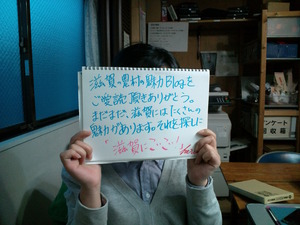 滋賀の農村の魅力Blogを
ご愛読頂きありがとう。
まだまだ、滋賀にはたくさんの
魅力があります。それを探しに
「滋賀にごーごー!
アンケート
回収箱